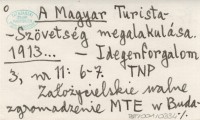 A Magyar Turista-
-Szövetség megalakulása.
1913... - Idegenforgalom
3, nr 11: 6-7. TNP
Założycielskie walne
zgromadzenie MTE w Buda-